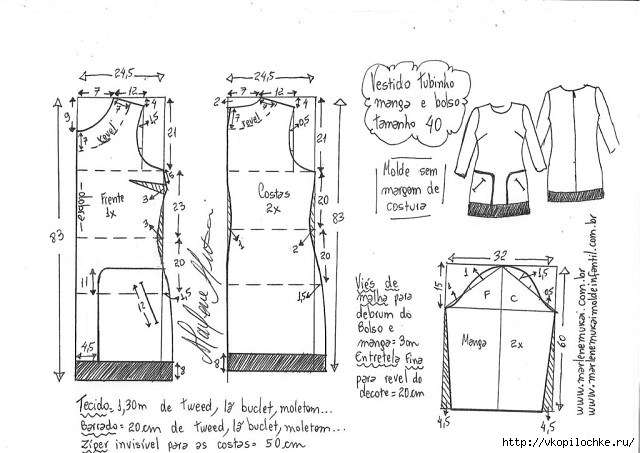 Vestido tubinho
manga e bolso
tamanho 40
Molde sem
margem de
costura
24,5
7
12
4
9
7
revel
1,5
21
1,5
dobra
Frente
1x
3
23
3
83
20
11
12
1,5
4,5
8
24,5
2
7
12
4
7
revel
0,5
21
Costas
2x
20
83
2
2
20
1,5
8
Marlene Mukai
32
15
1
1,5
F
C
0,5
Manga
2x
60
4,5
4,5
Viés de
malha para
debrum do
Bolso e
manga=3m
Entretela Fina
para revel do
decote=20cm
www.marlenemukai.com.br
www.marlenemukaimoldeinfantil.com.br
Tecido=1,30m de tweed, lã buclet, moletom...
Barrado=20cm de tweed, lã buclet, moletom...
Zíper invisível para as costas=50cm
http://vkopilochke.ru/